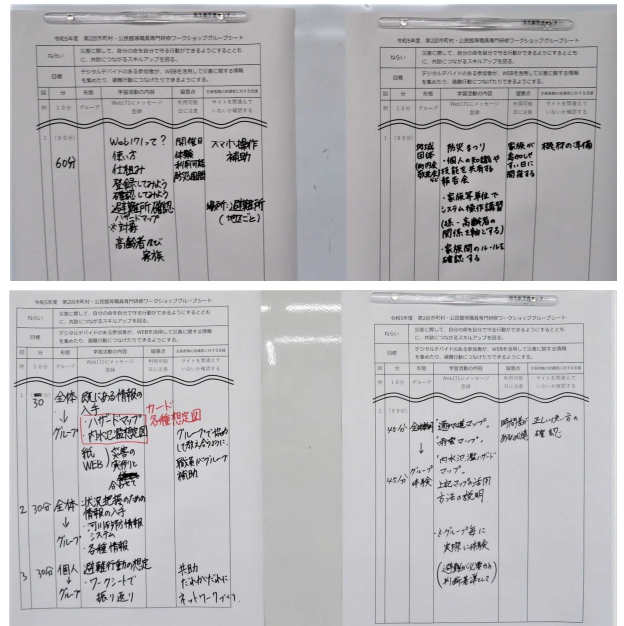 令和5年度 第2回市町村・公民館等職員専門研修ワークショップグループシート
ねらい
災害に際して、自分の命を自分で守る行動ができるようにするととも
に、共助につながるスキルアップを図る。
目標
デジタルデバイドのある参加者が、WEBを活用して災害に関する情報
を集めたり、避難行動につなげたりできるようにする。
回 分 形態 学習活動の内容 留意点
例 10分 グループ Web171にメッセージ 登録 利用可能日に注意 サイトを間違えていないか確認する
1 (90分)
60分
Web171って?
使い方
仕組み
登録してみよう
確認してみよう
避難所確認
ハザードマップ
※対象
高齢者及び
家族
開催日
体験
利用可能
防災週間
スマホ操作
補助
場所:避難所
(地区ごと)
令和5年度 第2回市町村・公民館等職員専門研修ワークショップグループシート
ねらい
災害に際して、自分の命を自分で守る行動ができるようにするととも
に、共助につながるスキルアップを図る。
目標
デジタルデバイドのある参加者が、WEBを活用して災害に関する情報
を集めたり、避難行動につなげたりできるようにする。
回 分 形態 学習活動の内容 留意点
例 10分 グループ Web171にメッセージ 登録 利用可能日に注意 サイトを間違えていないか確認する
1 (90分)
地域
団体
防災まつり
・個人の知識や
技能を共有する
報告会
・家族等単位で
システム操作講習
(孫・高齢者の
関係を軸とする)
・家族間のルールを
確認する
家族が
参加し
やすい日に
開催する
機材の準備
令和5年度 第2回市町村・公民館等職員専門研修ワークショップグループシート
ねらい
災害に際して、自分の命を自分で守る行動ができるようにするととも
に、共助につながるスキルアップを図る。
目標
デジタルデバイドのある参加者が、WEBを活用して災害に関する情報
を集めたり、避難行動につなげたりできるようにする。
回 分 形態 学習活動の内容 留意点
例 10分 グループ Web171にメッセージ 登録 利用可能日に注意 サイトを間違えていないか確認する
1 30 全体
↓
グループ
既にある情報の
入手
・ハザードマップ
・内水氾濫想定図
カード
各種想定図
紙
WEB
災害の
実例と
合わせて
グループで協力
して教え合うように
職員がグループ
補助
2 30分 全体
↓
グループ
状況把握のための
情報の入手
・河川防災情報
システム
・各種情報
3 30分 個人
↓
グループ
避難行動の想定
・ワークシートで
振り返り
共助
だれがだれに
ネットワークづくり
令和5年度 第2回市町村・公民館等職員専門研修ワークショップグループシート
ねらい
災害に際して、自分の命を自分で守る行動ができるようにするととも
に、共助につながるスキルアップを図る。
目標
デジタルデバイドのある参加者が、WEBを活用して災害に関する情報
を集めたり、避難行動につなげたりできるようにする。
回 分 形態 学習活動の内容 留意点
例 10分 グループ Web171にメッセージ 登録 利用可能日に注意 サイトを間違えていないか確認する
1 (90分)
45分 全体
↓
45分 グループ
体験
マップ。
上記マップを活用
方法の説明
・グループ毎に
実際に体験
正しい使い方の
確認